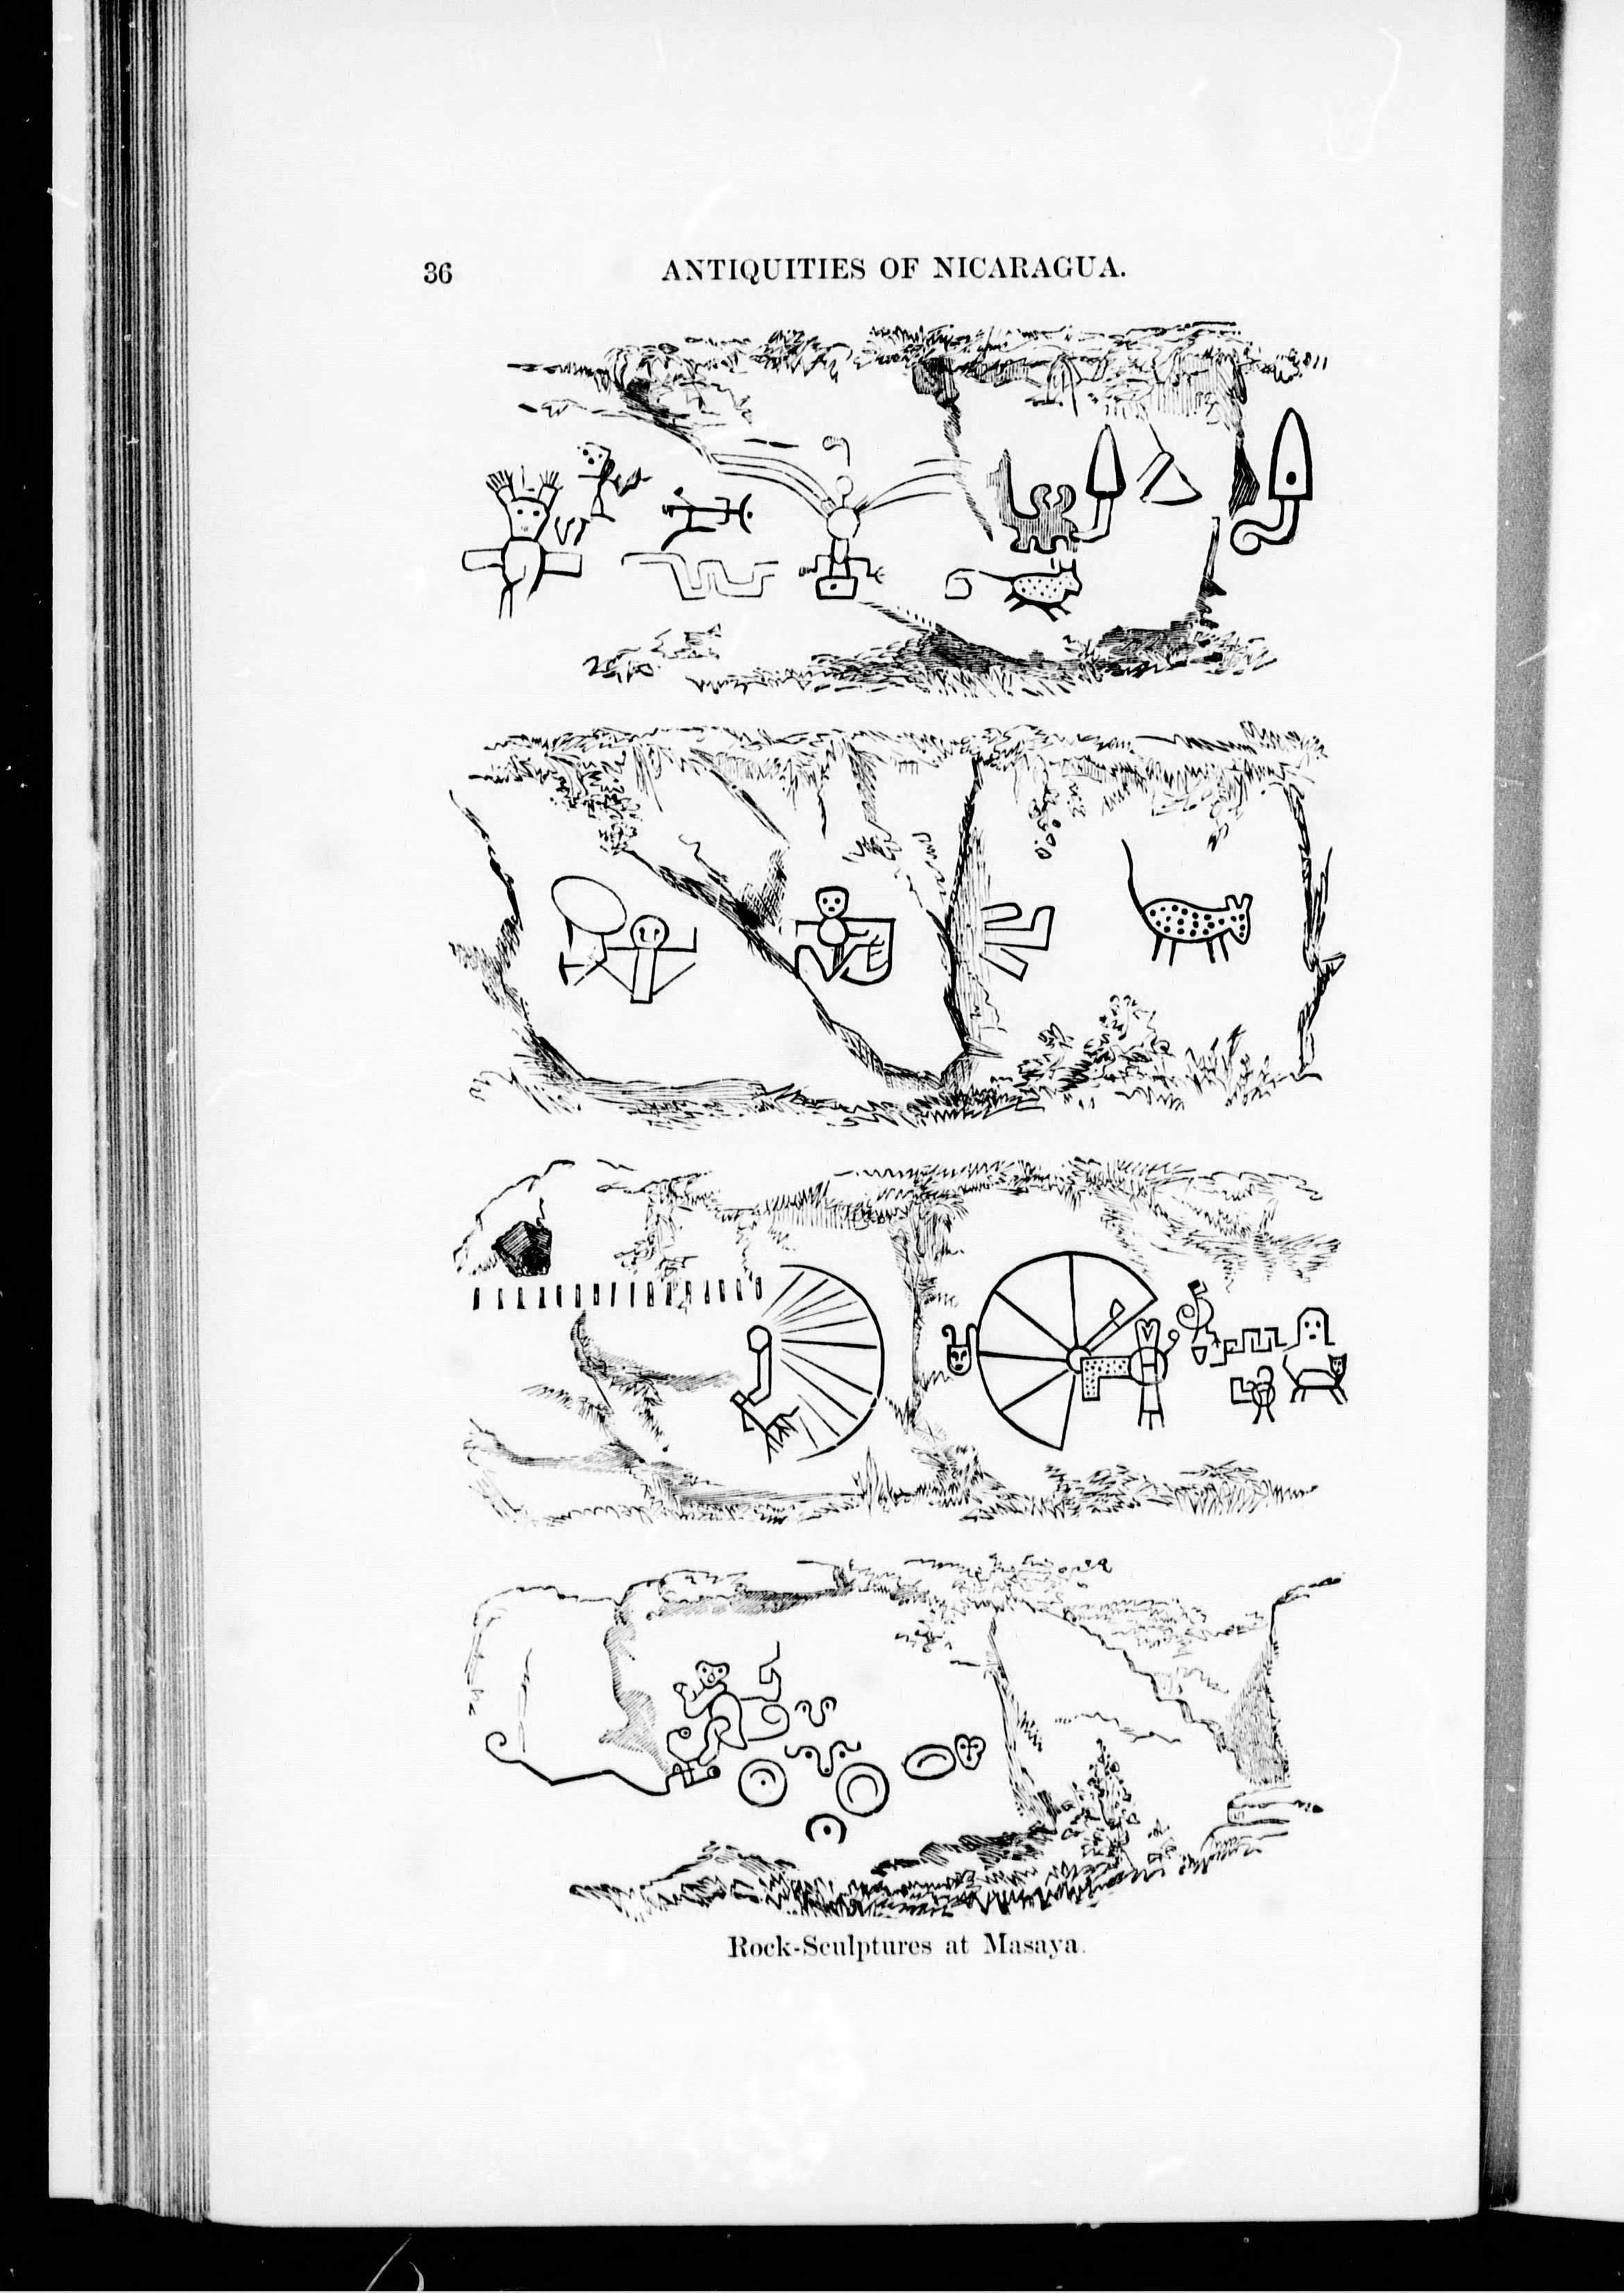 36
ANTIQUITIES OF NICARAGUA.
Rock-Sculptures at Masaya.